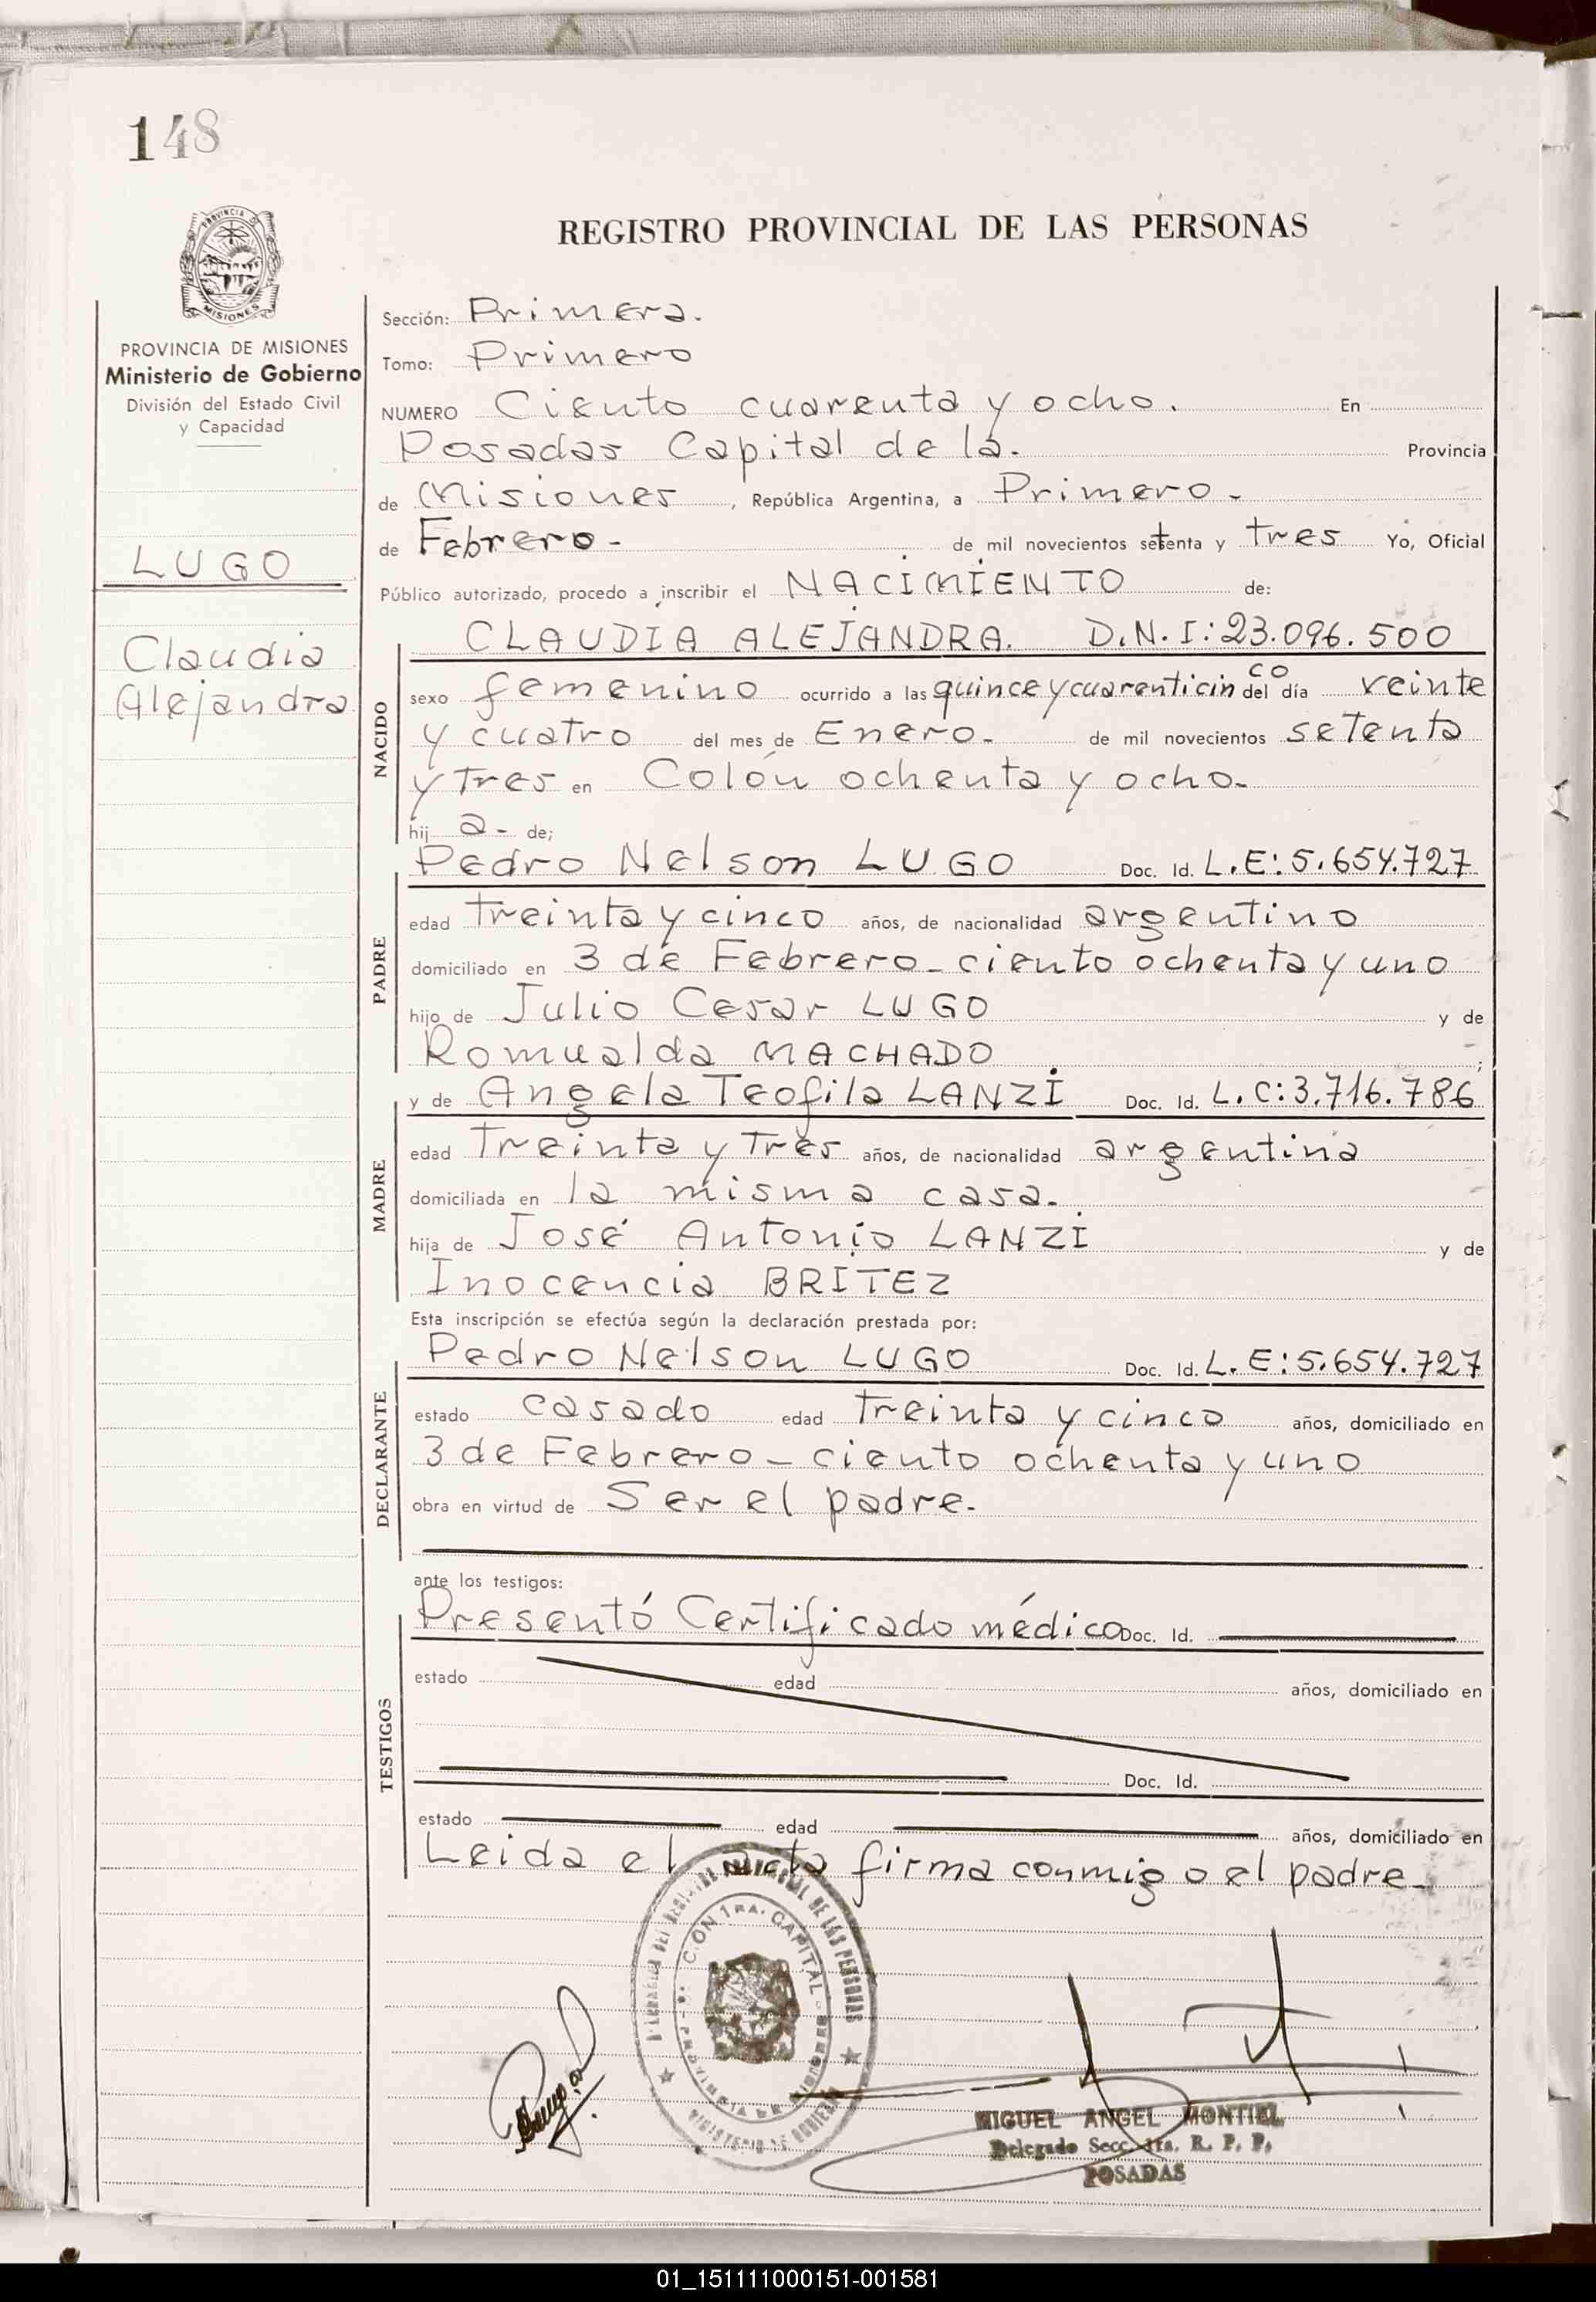 148
PROVINCIA DE
MISIONES
PROVINCIA DE MISIONES
Ministerio de Gobierno
División del Estado Civil
y Capacidad
LUGO
Claudia
Alejandra
REGISTRO PROVINCIAL DE LAS PERSONAS
Sección: Primera.
Tomo: Primero
NUMERO Ciento cuarenta y ocho. En
Posadas Capital de la. Provincia
de Misiones, República Argentina, a Primero-
de Febrero- de mil novecientos setenta y tres Yo, Oficial
Público autorizado, procedo a inscribir el NACIMIENTO de:
CLAUDIA ALEJANDRA. D.N.I: 23.096.500
NACIDO
sexo femenino ocurrido a las quince y cuarenticin co del día veinte
y cuatro del mes de Enero- de mil novecientos setenta
y tres en Colón ochenta y ocho-
hij a- de;
Pedro Nelson LUGO Doc. Id. L.E: 5.654.727
PADRE
edad treinta y cinco años, de nacionalidad argentino
domiciliado en 3 de Febrero- ciento ochenta y uno
hijo de Julio Cesar LUGO y de
Romualda MACHADO ;
y de Angela Teofila LANZI Doc. Id. L.C: 3.716.786
MADRE
edad treinta y tres años, de nacionalidad argentina
domiciliada en la misma casa.
hija de José Antonio LANZI y de
Inocencia BRITEZ
Esta inscripción se efectúa según la declaración prestada por:
Pedro Nelson LUGO Doc. Id. L.E: 5.654.727
DECLARANTE
estado casado edad treinta y cinco años, domiciliado en
3 de Febrero- ciento ochenta y uno
obra en virtud de Ser el padre.
ante los testigos:
Presentó Certificado médico Doc. Id.
TESTIGOS
estado edad años, domiciliado en
Doc. Id.
estado edad años, domiciliado en
Leida el acta firma conmigo el padre-
DE LAS PERSONAS
CAPITAL
MIGUEL ANGEL MONTIEL
Delegado Secc. 1ra. R. P. P.
POSADAS
01_151111000151-001581